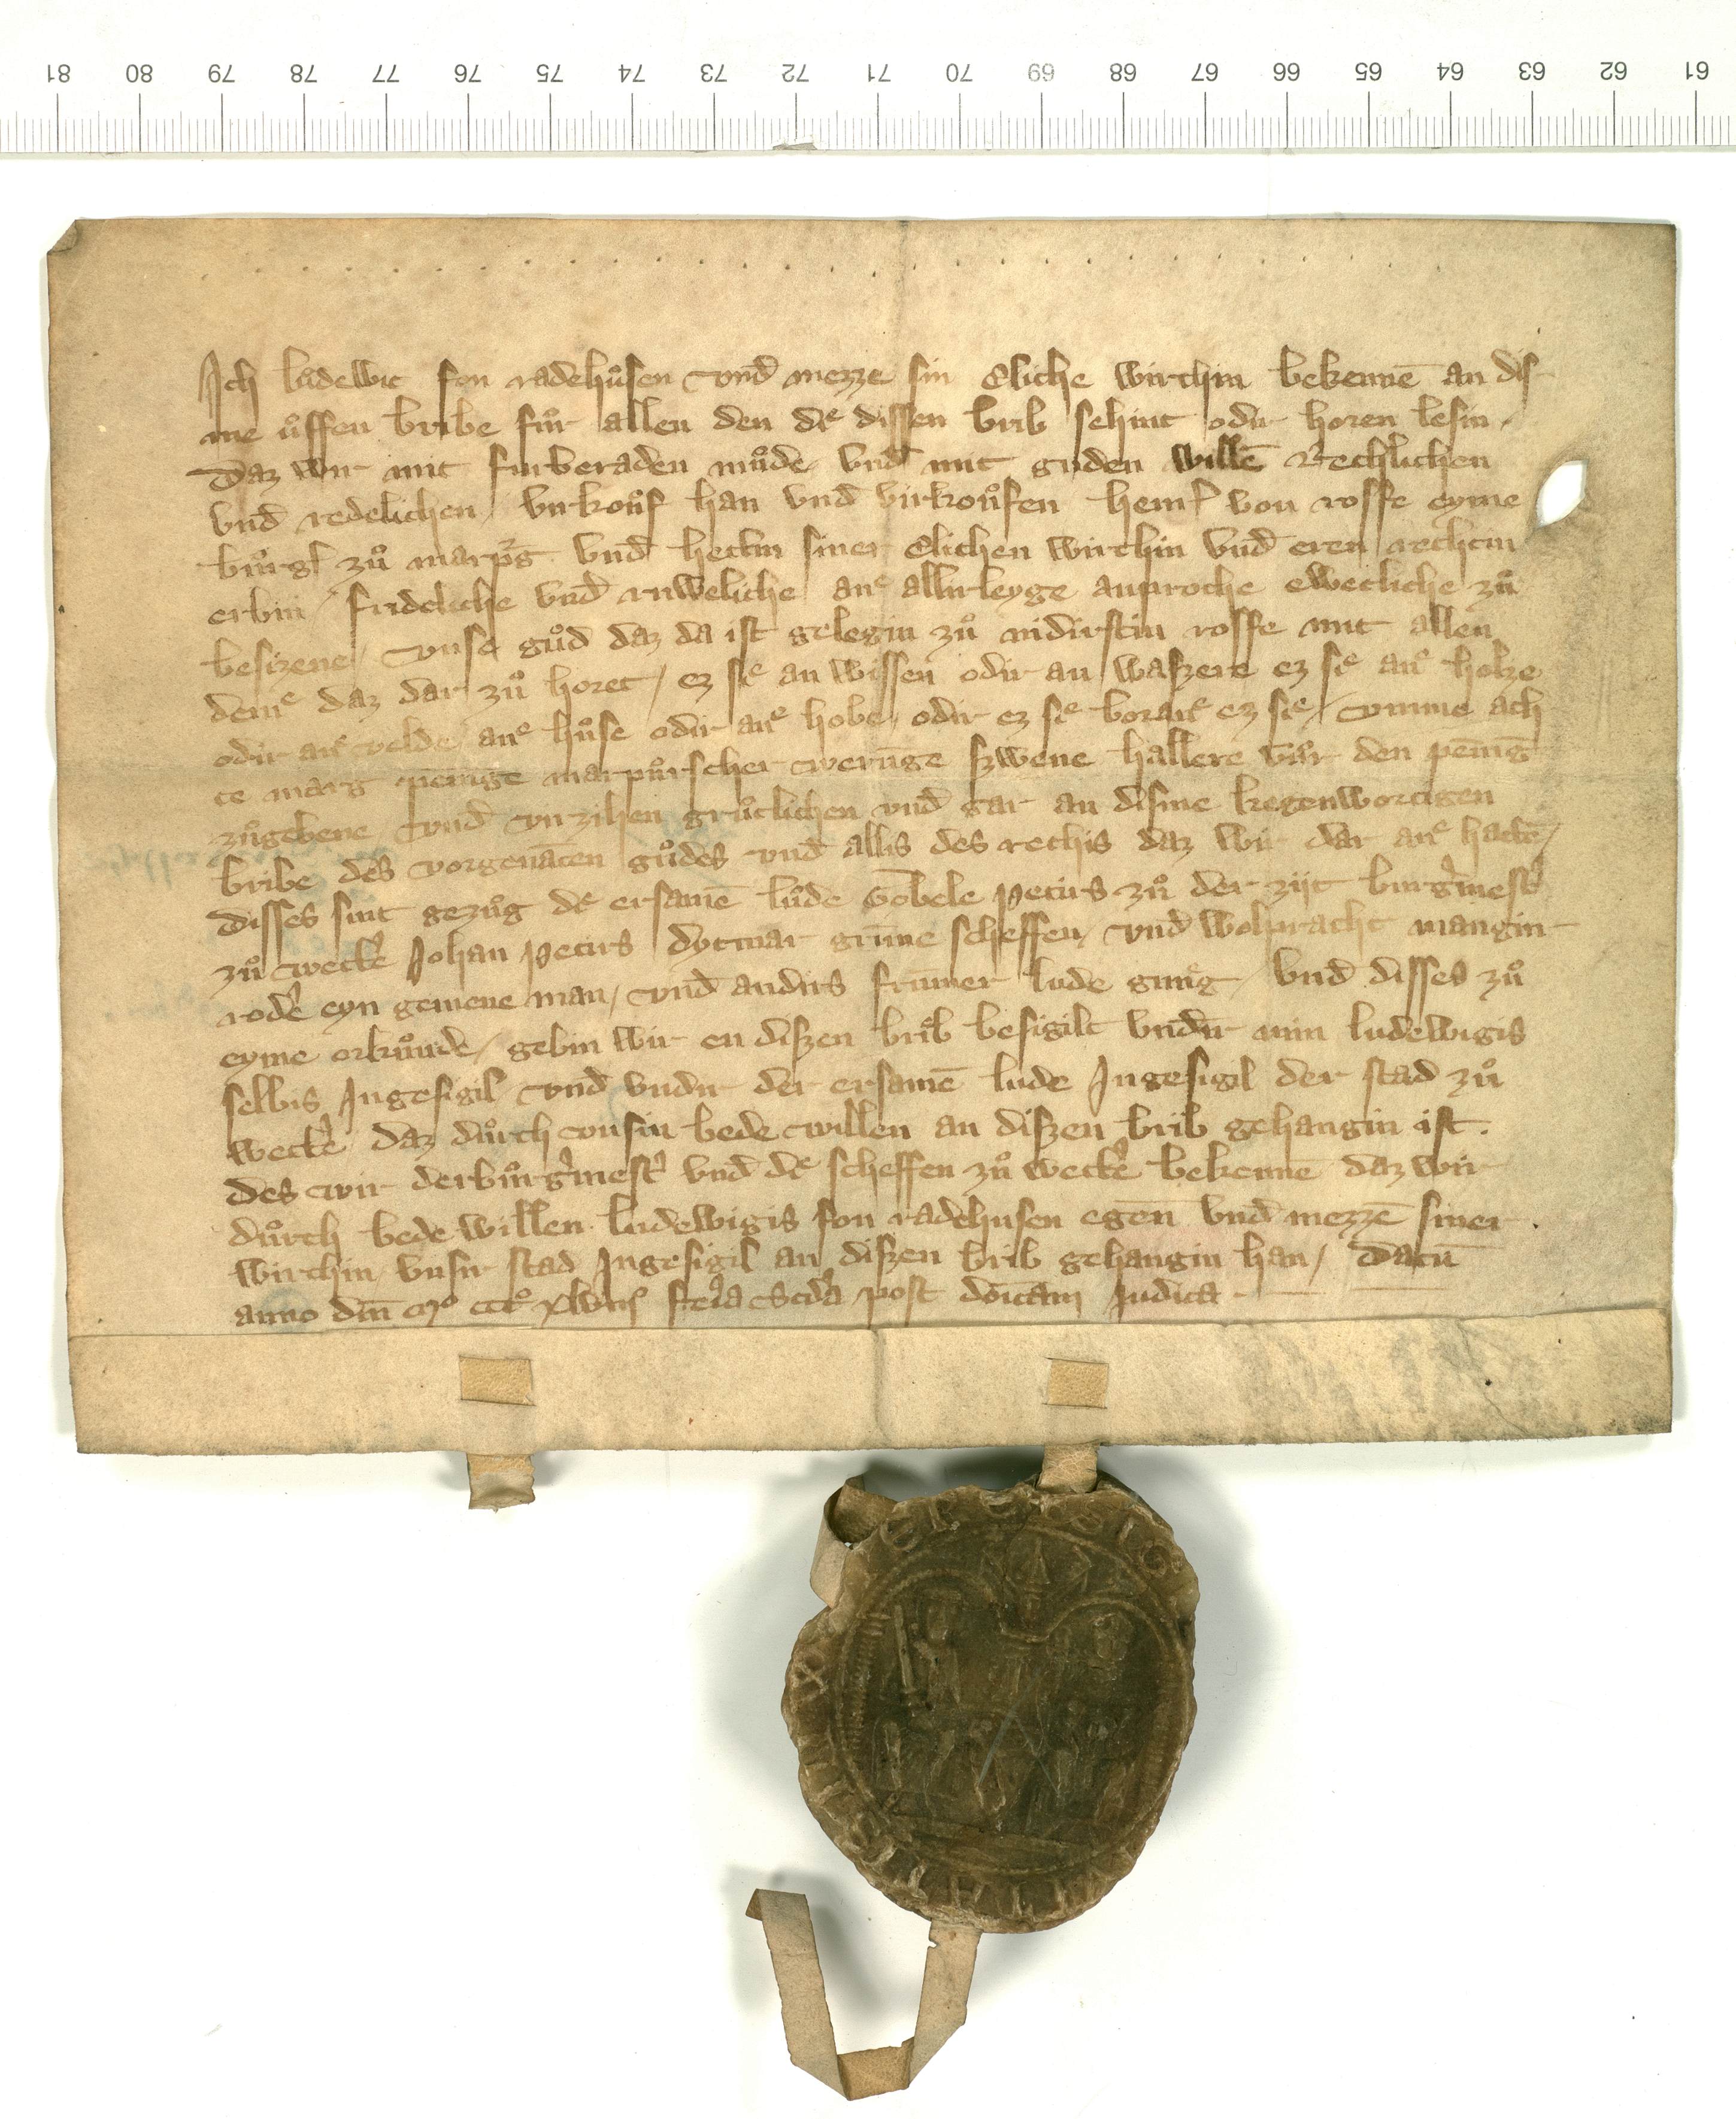 81 80 79 78 77 76 75 74 73 72 71 70 69 68 67 66 65 64 63 62 61
Ich ludewic fon radehůsen vnd mezze sin eliche wirthin bekennē an dis
me uͦffen bribe fuͦr allen den dͤ dissen brib sehint odir horen lesin
Daz wir mit furberaden muͦde vnd mit guden willē Rechlichen
vnd redelichen virkouͦf han vnd virkouͦfen heinr̄ von rosfe eyme
buͦrḡ zuͦ marpḡ vnd heckin siner elichen wirthin vnd eren rechtin
erbin / frideliche vnd ruweliche anͤ allirleyge anproche ewecliche zuͦ
besizene / vnse guͦd daz da ist gelegin zuͦ nidirstin rosfe mit allen
demͤ daz dar zuͦ horet / ez sͤ an wissen odir an waszere ez sͤ anͤ holze
odir anͤ velde / anͤ huͦse odir anͤ hobe / odir ez sͤ boranͤ ez sͤ / vmme ach
te marg peninge marpuͦrscher werunge szwene hallere vuͦr den pēnīg
zuͦgebene / vnd virzihen gruͦclichen vnd gar an disme kegenwortigen
bribe des vorgenāten guͦdes vnd allis des rechtis daz wir dar anͤ hattē /
disses sint gezuͦg dͤ ersamē luͦde Gobele petirs zuͦ der zijt burg̓mest̓
zuͦ wett̓e Johan petirs dytmar grūne scheffen / vnd wolpracht mangin
rod̓e eyn gemene man / vnd andirs frūmer lude gnuͦg / vnd disses zuͦ
eyme orkuͦnde / gebin wir en diszen brib besigilt vndir min ludewigis
selbis Ingesigil vnd vndir der ersamē lude Ingesigil der stad zuͦ
wett̓e daz duͦrch vnsin bede willen an diszen brib gehangin ist.
des wir der buͦrg̓mest̓ vnd dͤ scheffen zuͦ wett̓e bekennē daz wir
duͦrch bede willen ludewigis fon radehusen egen̄ vnd mezzē siner
wirthin / vnsir stad Ingesigil an diszen brib gehangin han / Datū
anno dn̄i mͦ cccͦ xlviiͦ fer̓ia scd̓a post dn̄icam Iudica